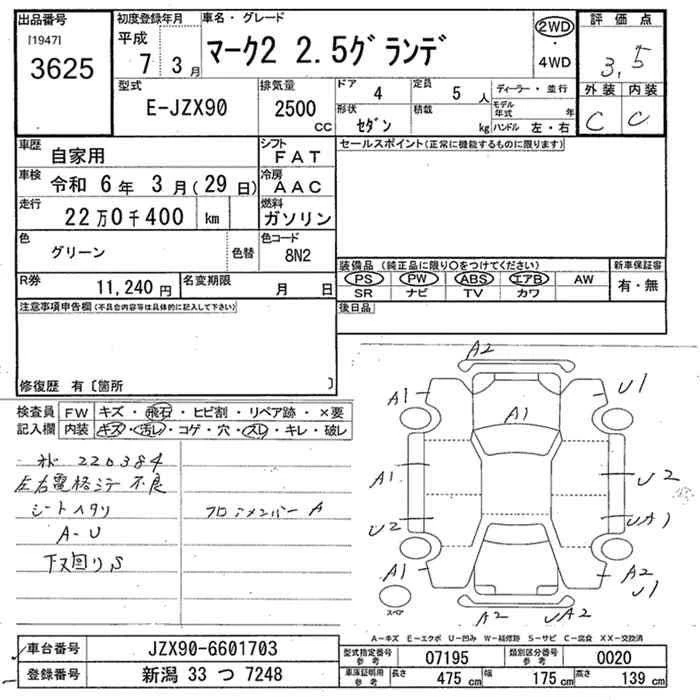 出品番号
[1947]
3625
初度登録年月
平成
7 3月
車名・グレード
マーク2 2.5グランデ
2WD
・
4WD
評価点
3.5
外装 内装
C C
型式
E-JZX90
排気量
2500
cc
ドア 4
定員 5人
形状
セダン
積載
kg
ディーラー・並行
モデル年式 年
ハンドル 左・右
車歴
自家用
車検
令和 6年 3月(29日)
走行
22万0千400 km
シフト
FAT
冷房
AAC
燃料
ガソリン
色
グリーン
色替
色コード
8N2
R券
11,240円
名変期限
月 日
セールスポイント(正常に機能するものに限ります)
装備品(純正品に限り○をつけてください)
PS PW ABS エアB AW
SR ナビ TV カワ
新車保証書
有・無
後日品
注意事項申告欄(不具合内容等は具体的に記入して下さい)
修復歴 有〔箇所 〕
検査員記入欄
FW キズ・飛石・ヒビ割・リペア跡・×要
内装 キズ・汚レ・コゲ・穴・スレ・キレ・破レ
オド 220384
左右電格ミラー不良
シートヘタリ
A-U
下回りS
フロアメンバー A
A2
A1
U1
A1
A1
U2
U2
UA1
A1
A2
U1
A2
UA2
スペア
A-キズ E-エクボ U-凹み W-補修跡 S-サビ C-腐食 XX-交換済
車台番号
JZX90-6601703
登録番号
新潟 33 つ 7248
型式指定番号 参考
07195
類別区分番号 参考
0020
車庫証明用 参考
長さ 475cm
幅 175cm
高さ 139cm